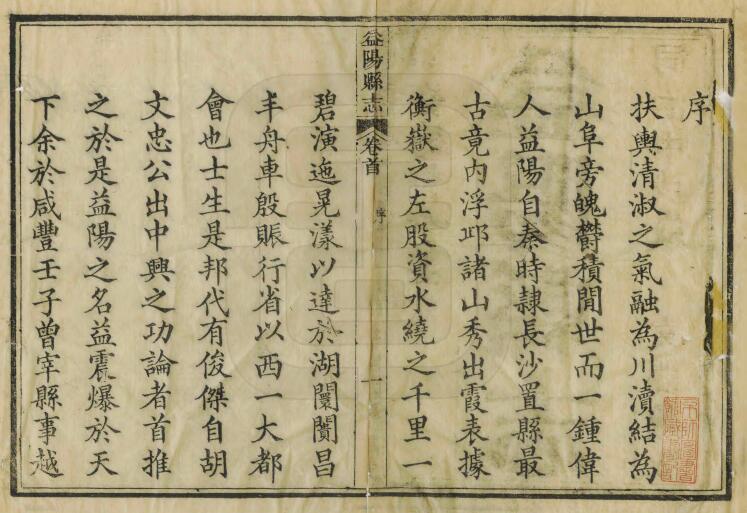 序
扶輿清淑之氣融為川瀆結為
山阜旁魄鬱積閒世而一鍾偉
人益陽自秦時隷長沙置縣最
古竟内浮邱諸山秀出霞表據
衡嶽之左股資水繞之千里一
益陽縣志
卷首
序
一
碧演迤晃漾以達於湖闤闠昌
丰舟車殷賑行省以西一大都
會也士生是邦代有俊傑自胡
文忠公出中興之功論者首推
之於是益陽之名益震爆於天
下余於咸豐壬子曾宰縣事越